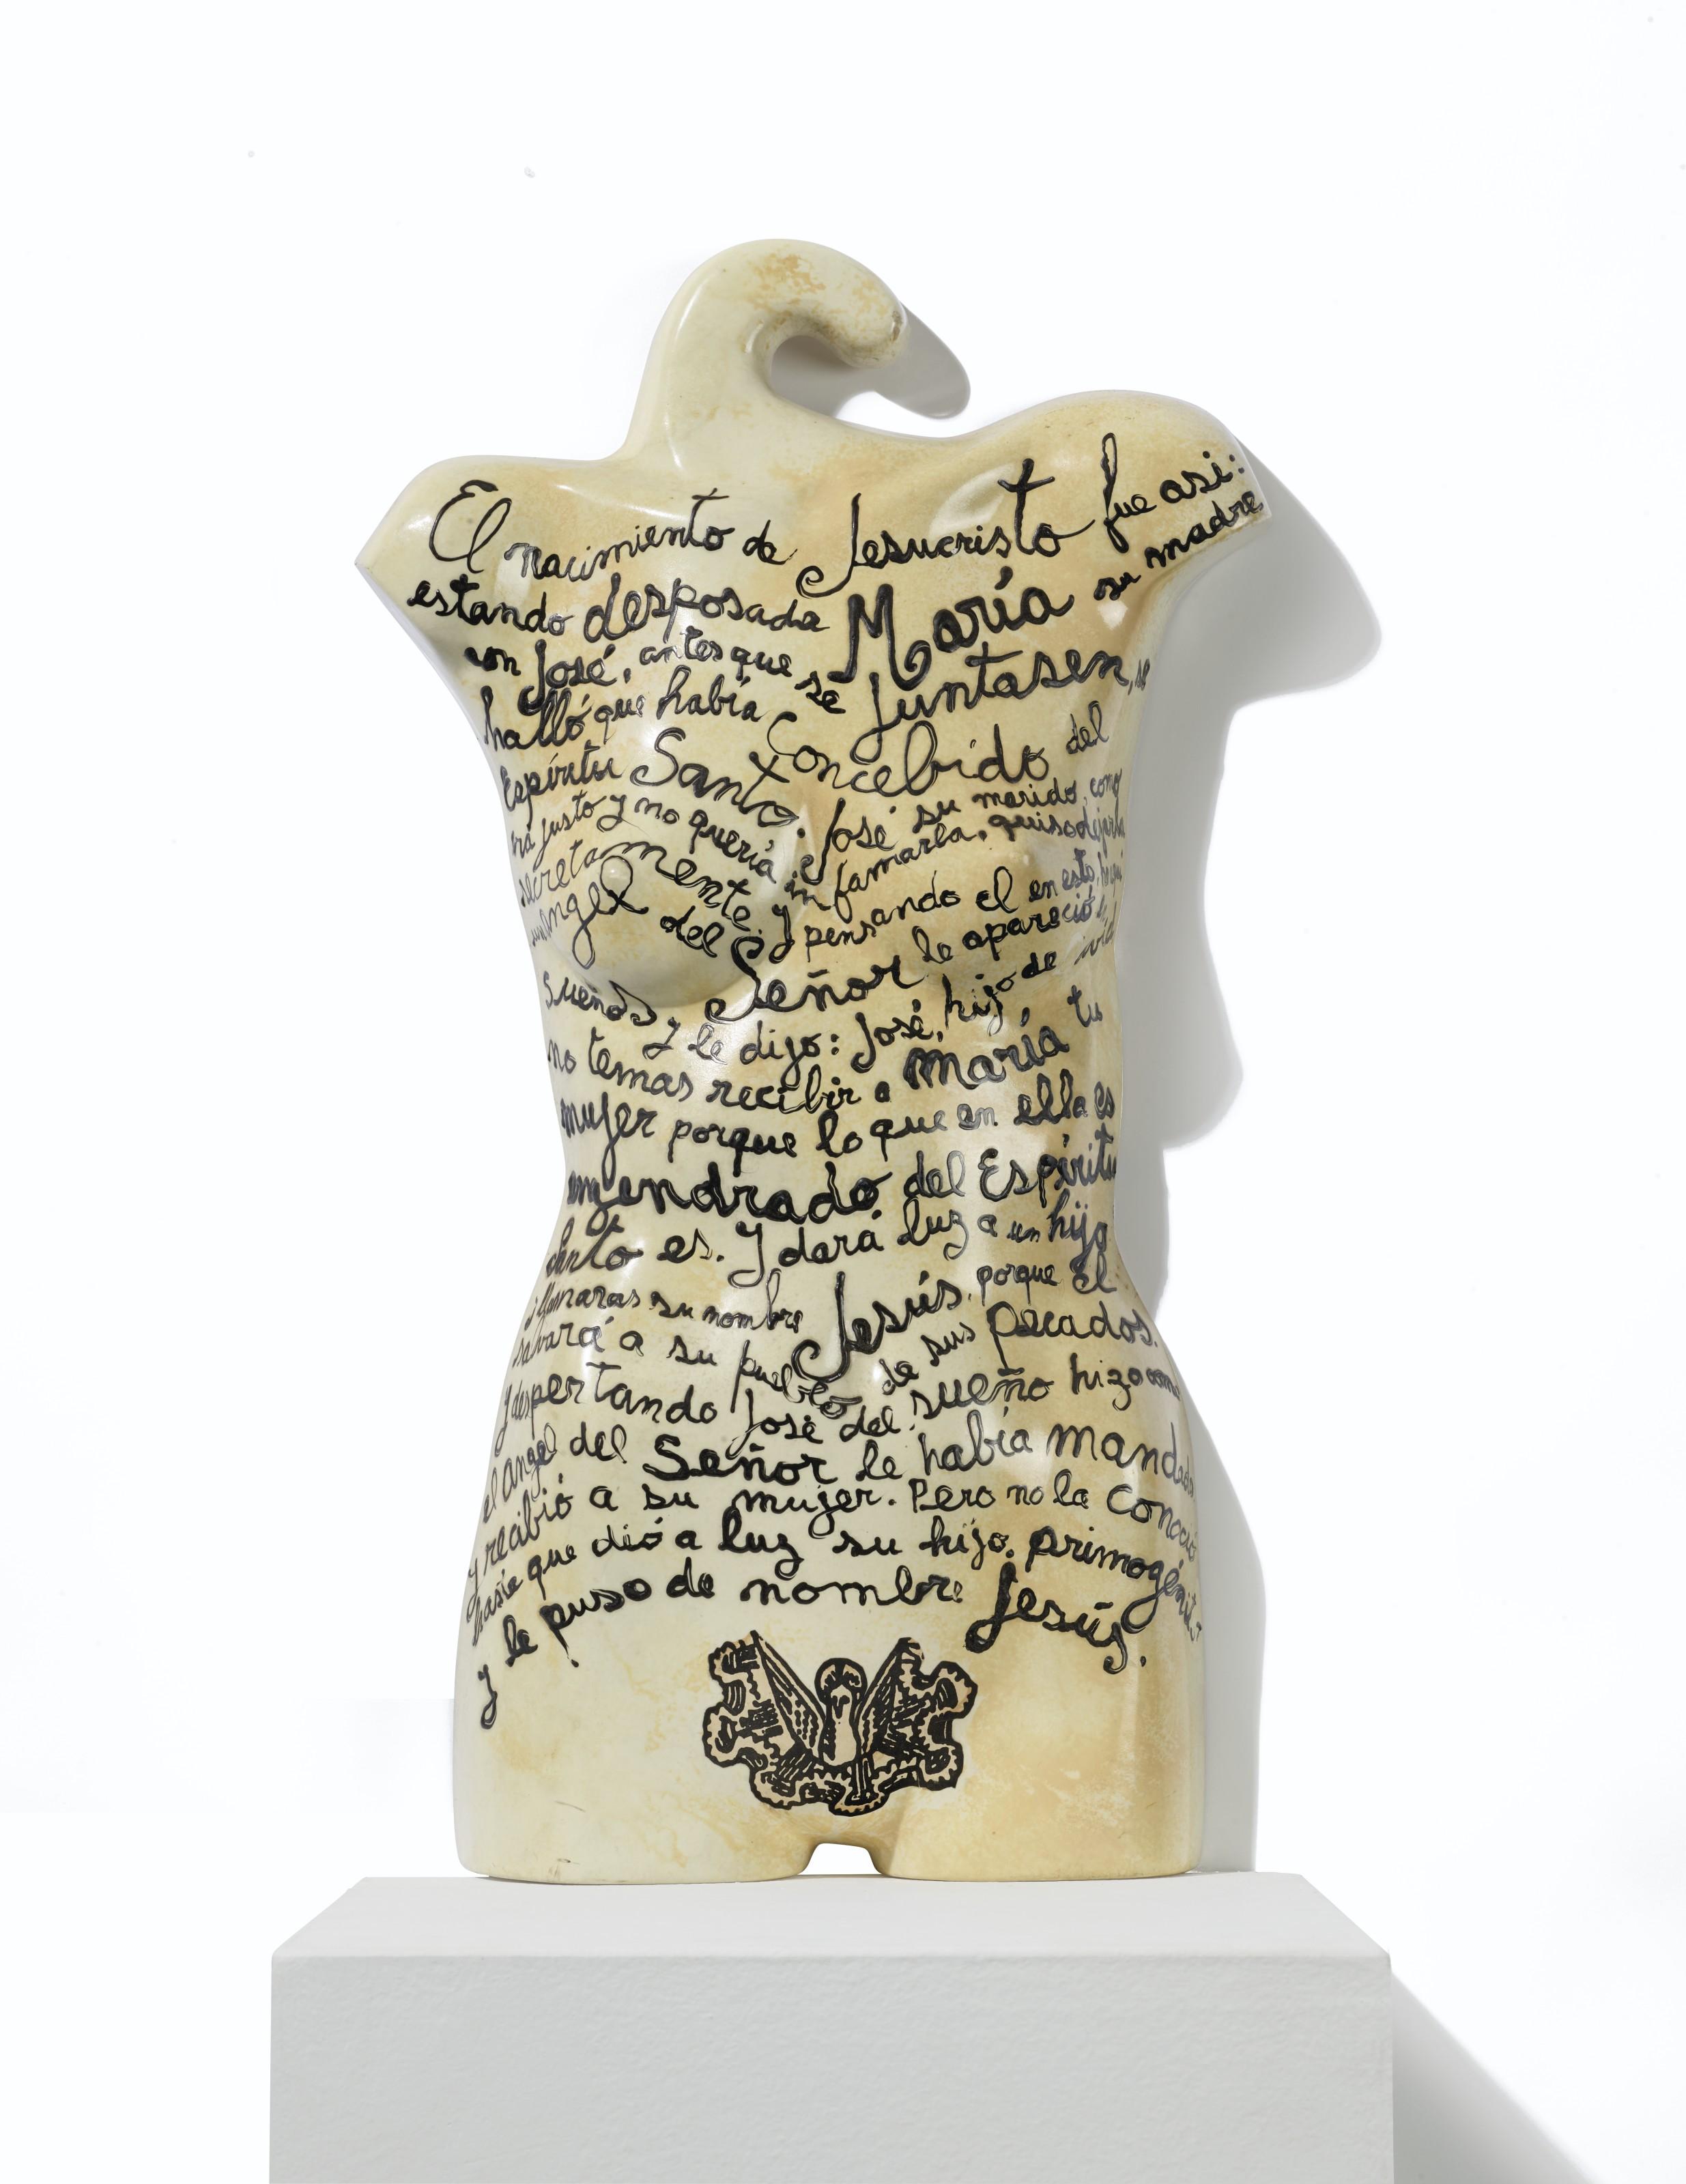 El nacimiento de Jesucristo fue asi:
estando desposada María su madre
con José, antes que se Juntasen, se
halló que había Concebido del
Espíritu Santo. José su marido, como
era justo y no quería infamarla, quiso dejarla
secretamente. y pensando el en esto, he aqui
un Angel del Señor le apareció
sueños y le dijo: José, hijo de
no temas recibir a María tu
mujer porque lo que en ella es
engendrado del Espíritu
Santo es. Y dará luz a un hijo
y llamaras su nombre Jesús, porque El
salvará a su pueblo de sus Pecados.
y despertando José del sueño hizo como
el angel del Señor le había mandado
y recibió a su mujer. Pero no la conoció
hasta que dió a luz su hijo primogénito
y le puso de nombre Jesús.